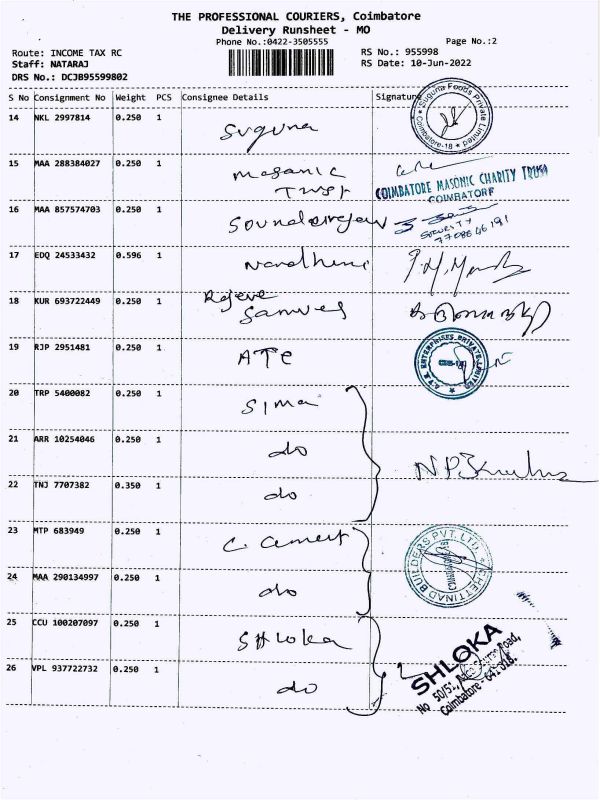 THE PROFESSIONAL COURIERS, Coimbatore
Delivery Runsheet - MO
Phone No.:0422-3505555
Page No.:2
Route: INCOME TAX RC
RS No.: 955998
Staff: NATARAJ
RS Date: 10-Jun-2022
DRS No.: DCJB95599802
S No Consignment No Weight PCS Consignee Details Signature
14 NKL 2997814 0.250 1 Suguna
Suguna Foods Private Limited
Coimbatore-18
15 MAA 288384027 0.250 1 Masonic
Trust
COIMBATORE MASONIC CHARITY TRUST
COIMBATORE
16 MAA 857574703 0.250 1 Soundarrajan
SECURITY
17 EDQ 24533432 0.596 1
18 KUR 693722449 0.250 1 Rajeve
Samuel
19 RJP 2951481 0.250 1 ATE
ENTERPRISES PRIVATE LIMITED
20 TRP 5400082 0.250 1 Sima
21 ARR 10254046 0.250 1 do
22 TNJ 7707382 0.350 1 do
23 MTP 683949 0.250 1 C. Cement
CHETTINAD BUILDERS PVT. LTD.
24 MAA 290134997 0.250 1 do
25 CCU 100207097 0.250 1 Shloka
SHLOKA
No 50/51,
Road,
Coimbatore - 641 018.
26 VPL 937722732 0.250 1 do